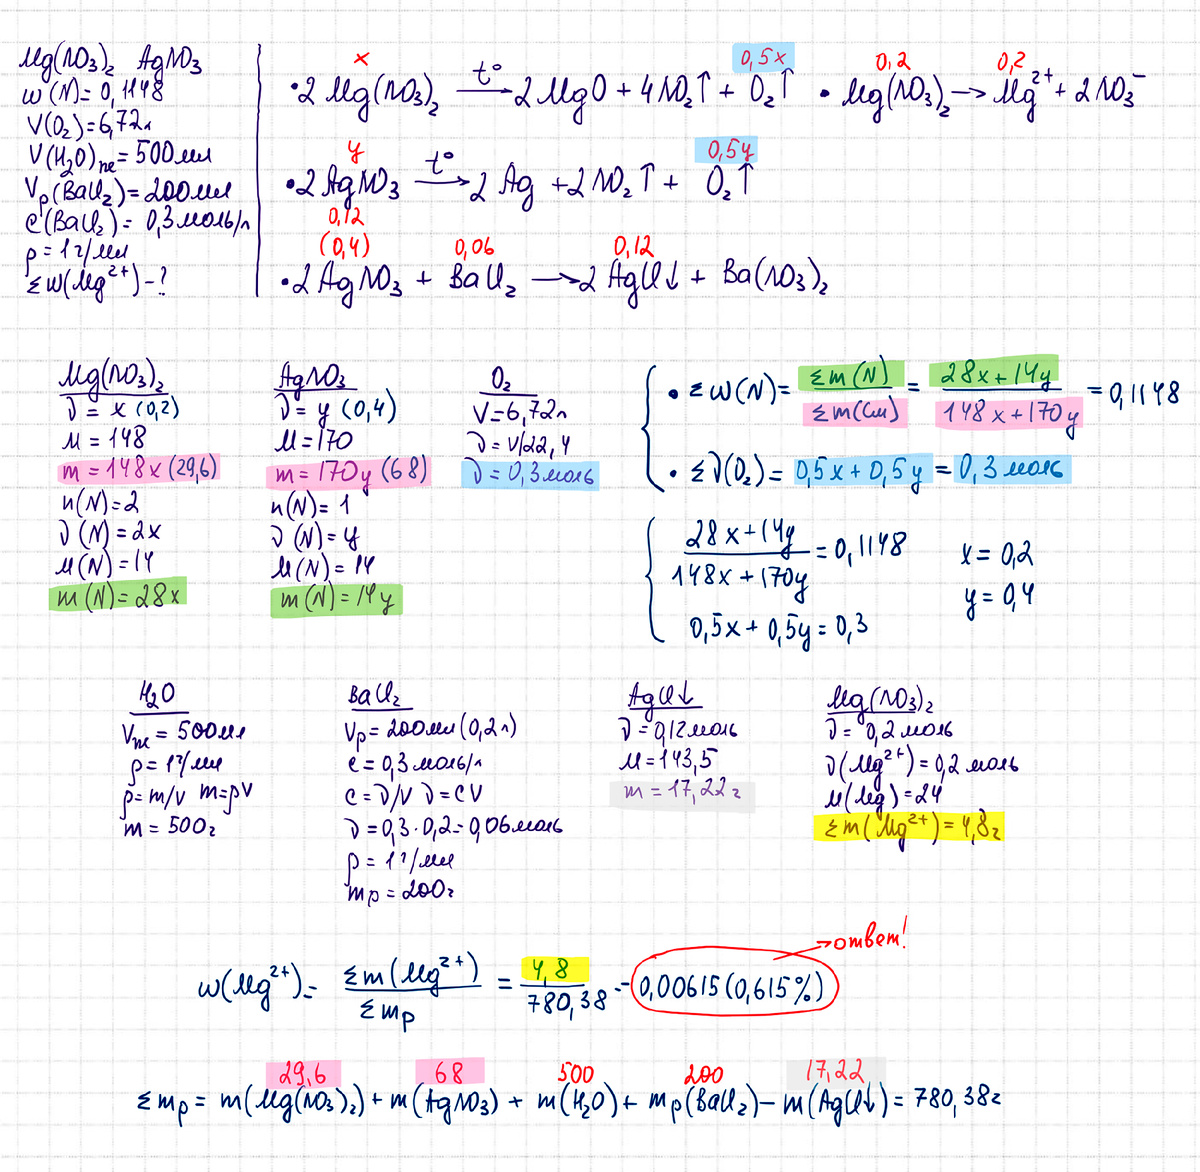 Mg(NO₃)₂ AgNO₃
w(N)=0,1148
V(O₂)=6,72л
V(H₂O)пе=500мл
Vр(BaCl₂)=200мл
c(BaCl₂)=0,3моль/л
ρ=1г/мл
Σw(Mg²⁺)-?
x 0,5x
·2Mg(NO₃)₂ t° → 2MgO + 4NO₂↑ + O₂↑
0,2 0,2
· Mg(NO₃)₂ → Mg²⁺ + 2NO₃⁻
y 0,5y
·2AgNO₃ t° → 2Ag + 2NO₂↑ + O₂↑
0,12
(0,4) 0,06 0,12
·2AgNO₃ + BaCl₂ → 2AgCl↓ + Ba(NO₃)₂
Mg(NO₃)₂
ν = x (0,2)
M = 148
m = 148x (29,6)
n(N)=2
ν(N)=2x
M(N)=14
m(N)=28x
AgNO₃
ν= y (0,4)
M=170
m=170y (68)
n(N)=1
ν(N)=y
M(N)=14
m(N)=14y
O₂
V=6,72л
ν=V/22,4
ν=0,3моль
· Σw(N)= Σm(N)/Σm(см) = 28x+14y/148x+170y =0,1148
· Σν(O₂)= 0,5x+0,5y = 0,3моль
28x+14y/148x+170y =0,1148
0,5x+0,5y=0,3
x=0,2
y=0,4
H₂O
Vпе=500мл
ρ=1г/мл
ρ=m/V m=ρV
m=500г
BaCl₂
Vр=200мл(0,2л)
c=0,3моль/л
c=ν/V ν=cV
ν=0,3·0,2=0,06моль
ρ=1г/мл
mр=200г
AgCl↓
ν=0,12моль
M=143,5
m=17,22г
Mg(NO₃)₂
ν=0,2моль
ν(Mg²⁺)=0,2моль
M(Mg)=24
Σm(Mg²⁺)=4,8г
→ответ!
w(Mg²⁺)= Σm(Mg²⁺)/Σmр = 4,8/780,38 = 0,00615(0,615%)
29,6 68 500 200 17,22
Σmр = m(Mg(NO₃)₂)+m(AgNO₃)+m(H₂O)+mр(BaCl₂)-m(AgCl↓)=780,38г